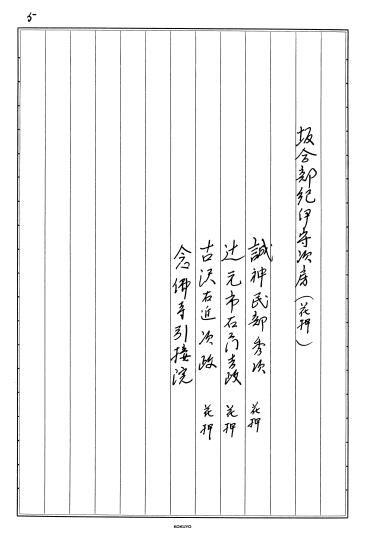 5
坂合部紀伊守次房（花押）
誠神民部秀次 花押
辻元市右门吉政 花押
古沢右近次政 花押
念佛寺引接院
KOKUYO